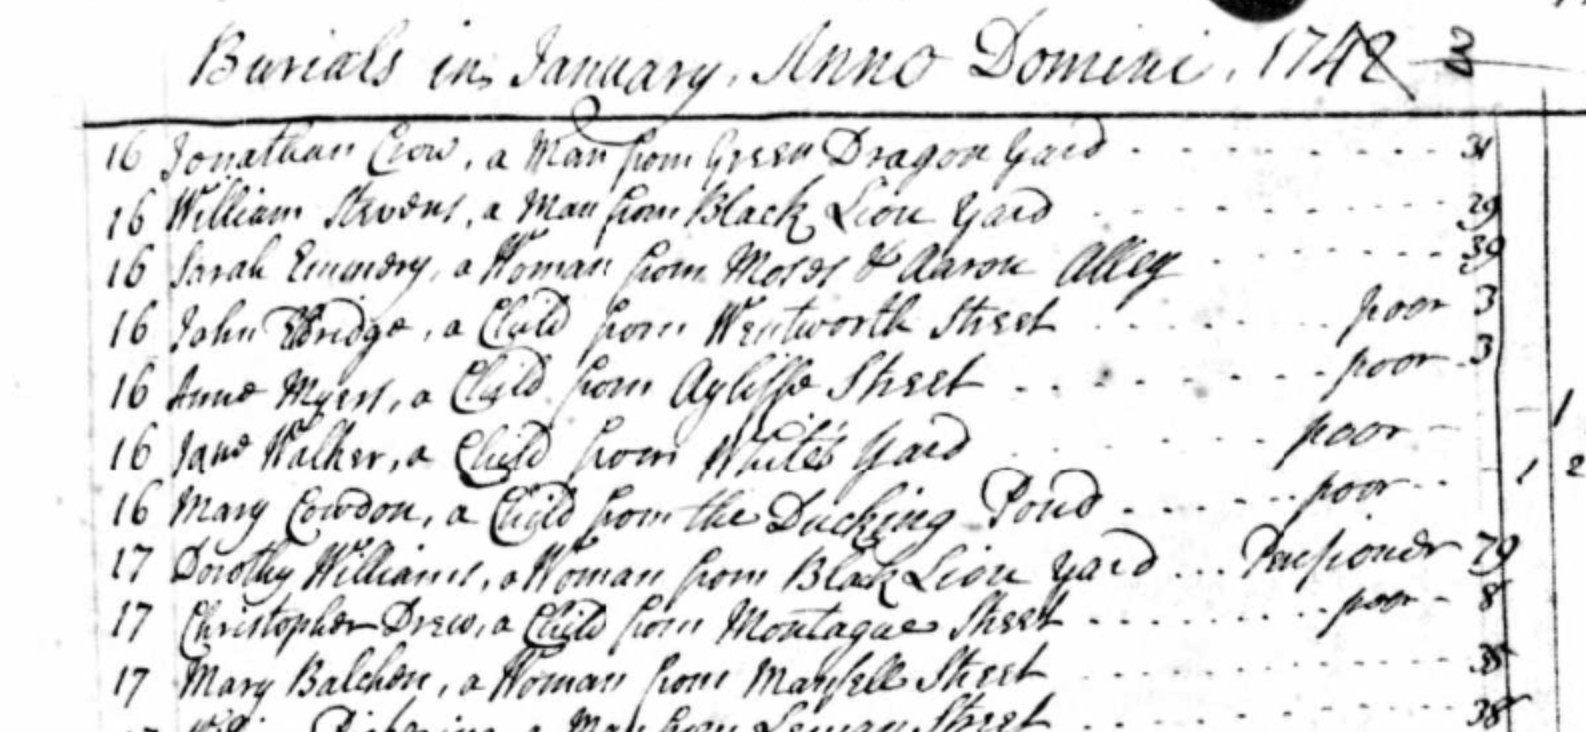 Burials in January, Anno Domini, 1742 3
16 Jonathan Crow, a Man from Green Dragon Yard 31
16 William Stevens, a Man from Black Lion Yard 29
16 Sarah Emmery, a Woman from Moses & Aaron Alley 39
16 John Eldridge, a Child from Wentworth Street poor 3
16 Anne Myers, a Child from Ayliffe Street poor 3
16 Jane Walker, a Child from White's Yard poor 1
16 Mary Cowdon, a Child from the Ducking Pond poor 1 2
17 Dorothy Williams, a Woman from Black Lion Yard Pensioner 79
17 Christopher Drew, a Child from Montague Street poor 8
17 Mary Balchen, a Woman from Mansell Street 35
Pickering, a Man from Leman Street 38